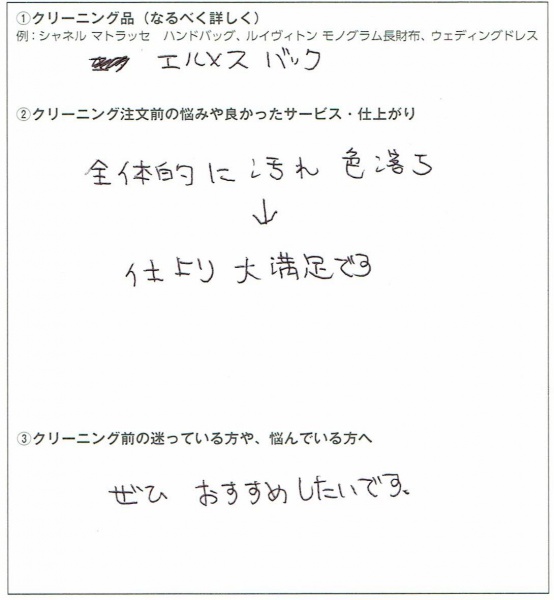 ①クリーニング品（なるべく詳しく）
例：シャネル マトラッセ　ハンドバッグ、ルイヴィトン モノグラム長財布、ウェディングドレス
エルメス バック
②クリーニング注文前の悩みや良かったサービス・仕上がり
全体的に汚れ 色落ち
↓
仕より 大満足です
③クリーニング前の迷っている方や、悩んでいる方へ
ぜひ おすすめしたいです。